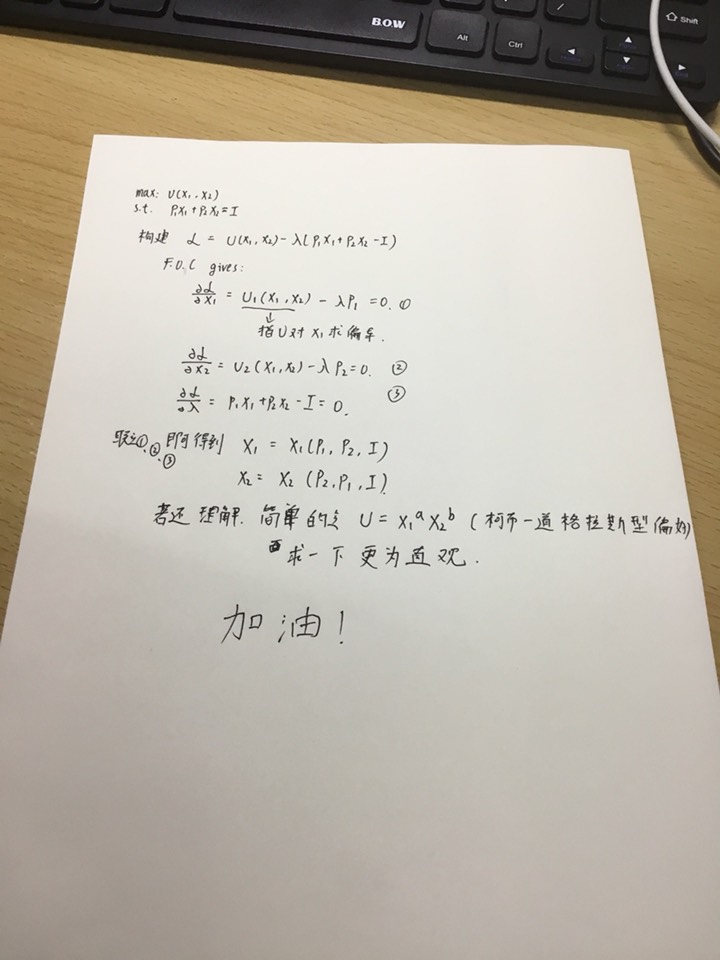 B.O.W
Alt
Ctrl
Shift
max: U(X₁,X₂)
s.t. P₁X₁+P₂X₂=I
构建 ℒ = U(X₁,X₂)-λ(P₁X₁+P₂X₂-I)
F.O.C gives:
∂ℒ/∂X₁ = U₁(X₁,X₂) - λP₁ = 0. ①
↓
指U对X₁求偏导.
∂ℒ/∂X₂ = U₂(X₁,X₂)-λP₂=0. ②
∂ℒ/∂λ = P₁X₁+P₂X₂-I=0. ③
联立①②③ 即可得到 X₁ = X₁(P₁,P₂,I)
X₂ = X₂(P₂,P₁,I)
若还理解.简单的令 U = X₁ᵃX₂ᵇ (柯布-道格拉斯型偏好)
求一下更为直观.
加油!